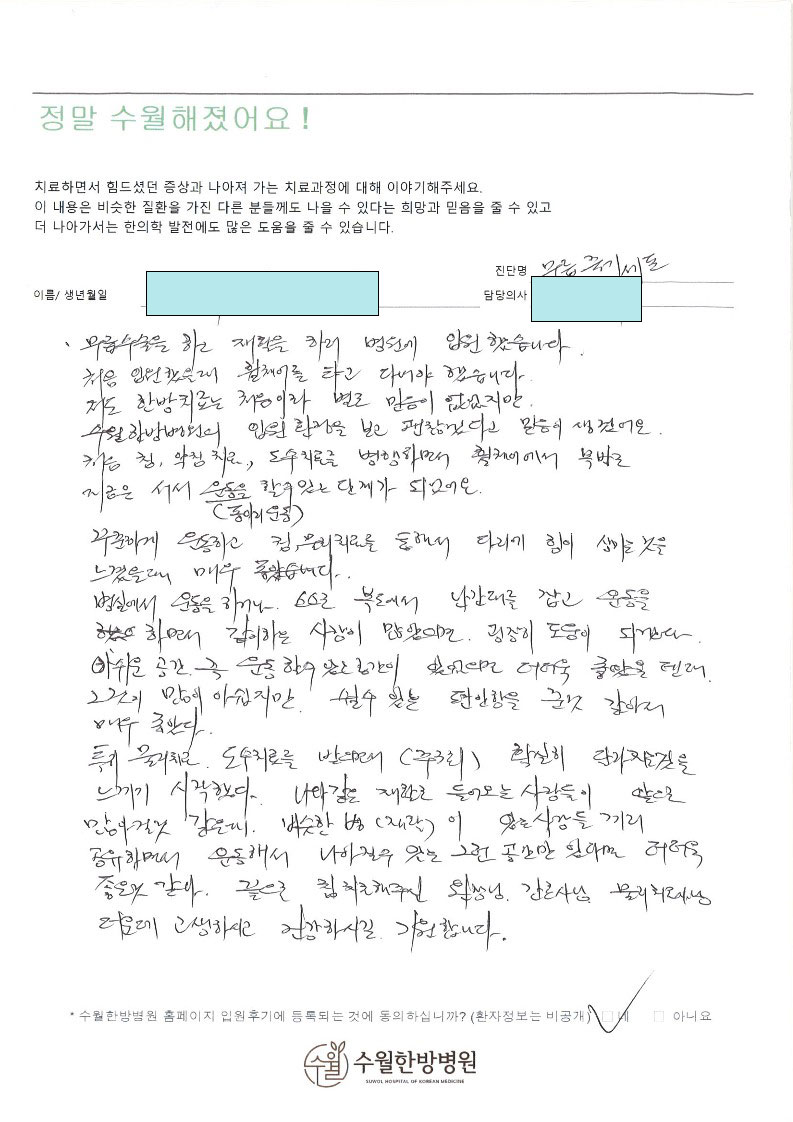 정말 수월해졌어요!
치료하면서 힘드셨던 증상과 나아져 가는 치료과정에 대해 이야기해주세요.
이 내용은 비슷한 질환을 가진 다른 분들께도 나을 수 있다는 희망과 믿음을 줄 수 있고
더 나아가서는 한의학 발전에도 많은 도움을 줄 수 있습니다.
진단명 무릎 줄기세포
이름/ 생년월일
담당의사
무릎수술을 하고 재활을 하러 병원에 입원했습니다.
처음 입원했을때 휠체어를 타고 다녀야 했습니다.
저도 한방치료는 처음이라 별로 믿음이 없었지만
수월한방병원의 입원환경을 보고 괜찮겠다고 믿음이 생겼어요.
처음 침, 약침 치료, 도수치료를 병행하면서 휠체어에서 목발로
지금은 서서 운동을 할수있는 단계가 되었어요.
(종아리운동)
꾸준하게 운동하고 침, 물리치료를 통해서 다리에 힘이 생기는 것을
느꼈을때 매우 좋았습니다.
병실에서 운동을 하거나 복도에서 난간대를 잡고 운동을
하면서 같이하는 사람이 많았으며 굉장히 도움이 되었다.
아쉬운 공간 즉 운동할수 있는 공간이 있었으면 더더욱 좋았을 텐데
그것이 많이 아쉽지만 쉴수 있는 편안함을 준것 같아서
매우 좋았다.
특히 물리치료 도수치료를 받으면서 확실히 달라짐을
느끼기 시작했다. 나와같은 재활로 들어오는 사람들이 앞으로
많아질것 같은데. 비슷한 병(재활)이 있는사람들 끼리
공유하면서 운동해서 나아질수 있는 그런 공간만 있다면 더더욱
좋을것 같다. 끝으로 침치료해주신 원장님, 간호사님, 물리치료사님
더운데 고생하시고 건강하시길 기원합니다.
* 수월한방병원 홈페이지 입원후기에 등록되는 것에 동의하십니까? (환자정보는 비공개) □ 네 □ 아니요
수월 수월한방병원
SUWOL HOSPITAL OF KOREAN MEDICINE